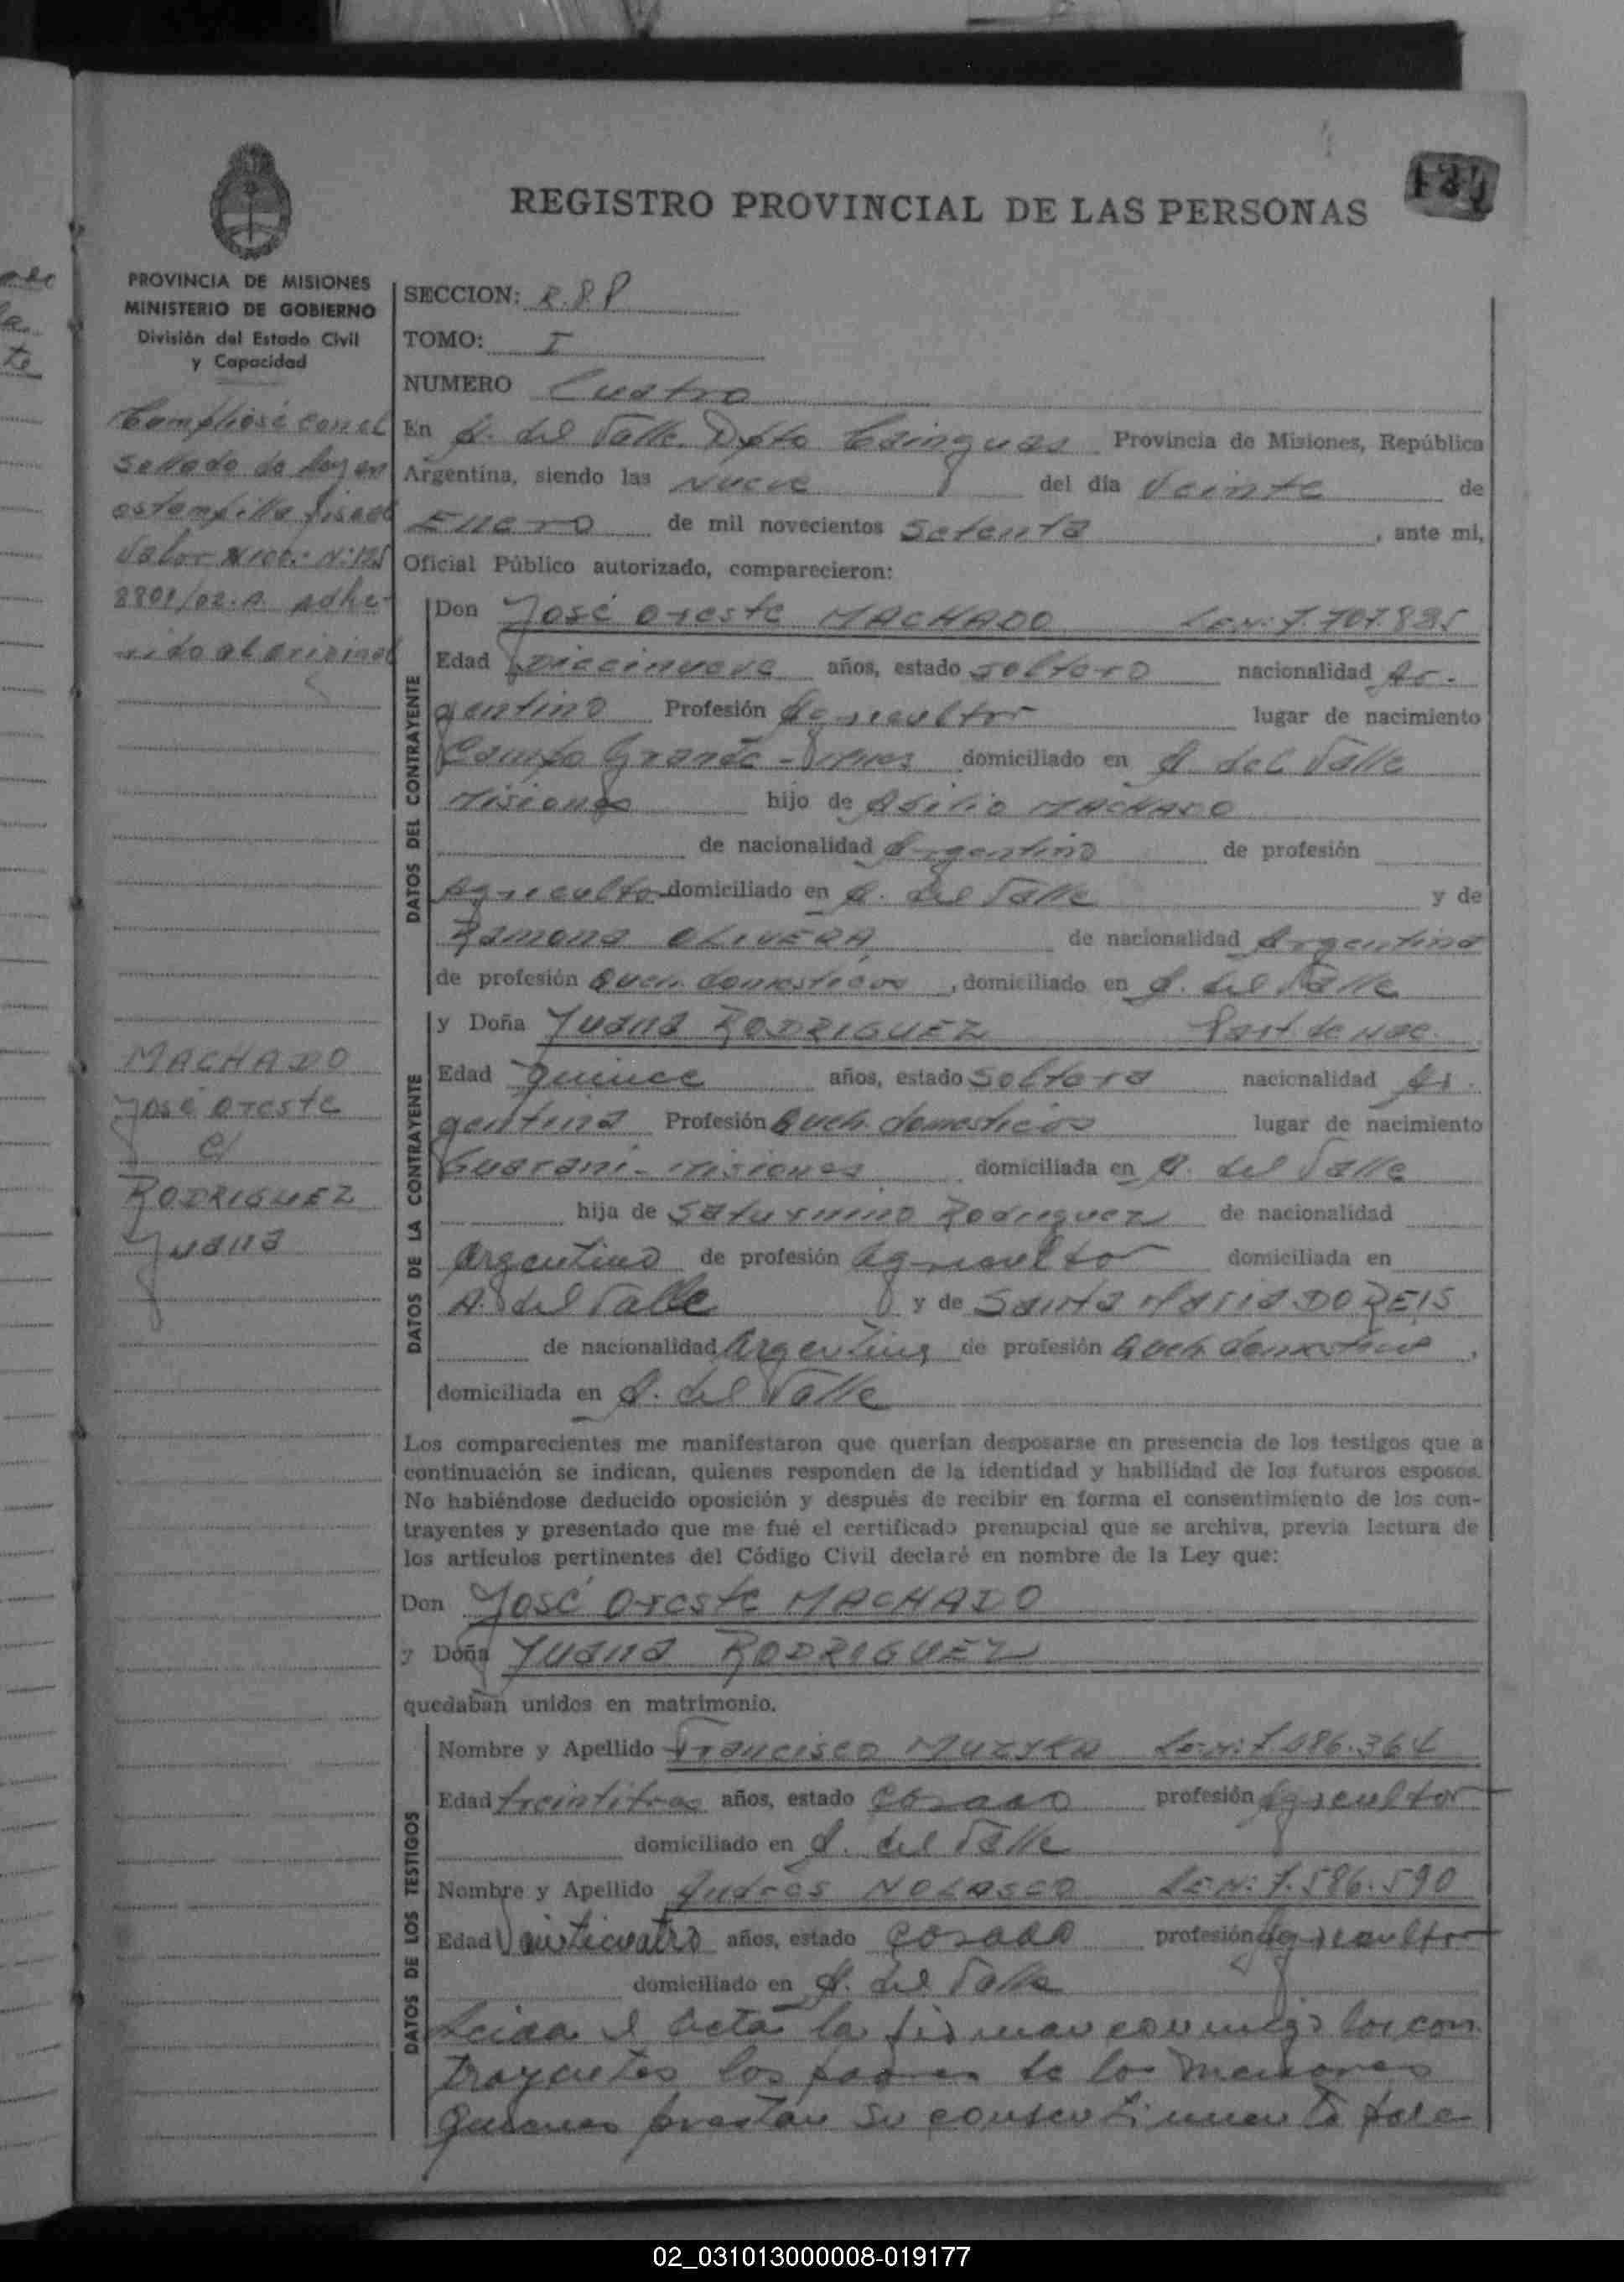 REGISTRO PROVINCIAL DE LAS PERSONAS
PROVINCIA DE MISIONES
MINISTERIO DE GOBIERNO
División del Estado Civil
y Capacidad
Complióse con el
sellado de ley en
estampilla fiscal
Valor $100.- Nº:125
8801/02.A. adhe-
rido al original
MACHADO
José Oreste
c/
RODRIGUEZ
Juana
SECCION: R.P.P
TOMO: I
NUMERO Cuatro
En A. del Valle. Dpto Cainguas Provincia de Misiones, República
Argentina, siendo las Nueve del día Veinte de
Enero de mil novecientos Setenta, ante mi,
Oficial Público autorizado, comparecieron:
DATOS DEL CONTRAYENTE
Don José Oreste MACHADO L.E.N: 7.707.835
Edad Diecinueve años, estado soltero nacionalidad Ar-
gentino Profesión Agricultor lugar de nacimiento
Campo Grande - domiciliado en A. del Valle
Misiones hijo de MACHADO
de nacionalidad Argentino de profesión
Agricultor domiciliado en A. del Valle y de
Ramona OLIVERA, de nacionalidad Argentina
de profesión Queh. domesticos, domiciliado en A. del Valle
DATOS DE LA CONTRAYENTE
y Doña Juana RODRIGUEZ Part de Nac.
Edad Quince años, estado Soltera nacionalidad Ar-
gentina Profesión Queh. domesticos lugar de nacimiento
Guarani - Misiones domiciliada en A. del Valle
hija de Saturnino Rodriguez de nacionalidad
Argentino de profesión Agricultor domiciliada en
A. del Valle y de Santa Maria DO REIS
de nacionalidad Argentina de profesión Queh. domesticos,
domiciliada en A. del Valle
Los comparecientes me manifestaron que querían desposarse en presencia de los testigos que a
continuación se indican, quienes responden de la identidad y habilidad de los futuros esposos.
No habiéndose deducido oposición y después de recibir en forma el consentimiento de los con-
trayentes y presentado que me fué el certificado prenupcial que se archiva, previa lectura de
los artículos pertinentes del Código Civil declaré en nombre de la Ley que:
Don José Oreste MACHADO
y Doña Juana RODRIGUEZ
quedaban unidos en matrimonio.
DATOS DE LOS TESTIGOS
Nombre y Apellido Francisco MUZYKA
Edad treintitres años, estado Casado profesión Agricultor
domiciliado en A. del Valle
Nombre y Apellido Andres NOLASCO L.E.N: 7.586.590
Edad Veinticuatro años, estado Casado profesión Agricultor
domiciliado en A. del Valle
Leida el acta la firman conmigo los con-
trayentes los padres de los menores
quienes prestan su consentimiento para
02_031013000008-019177